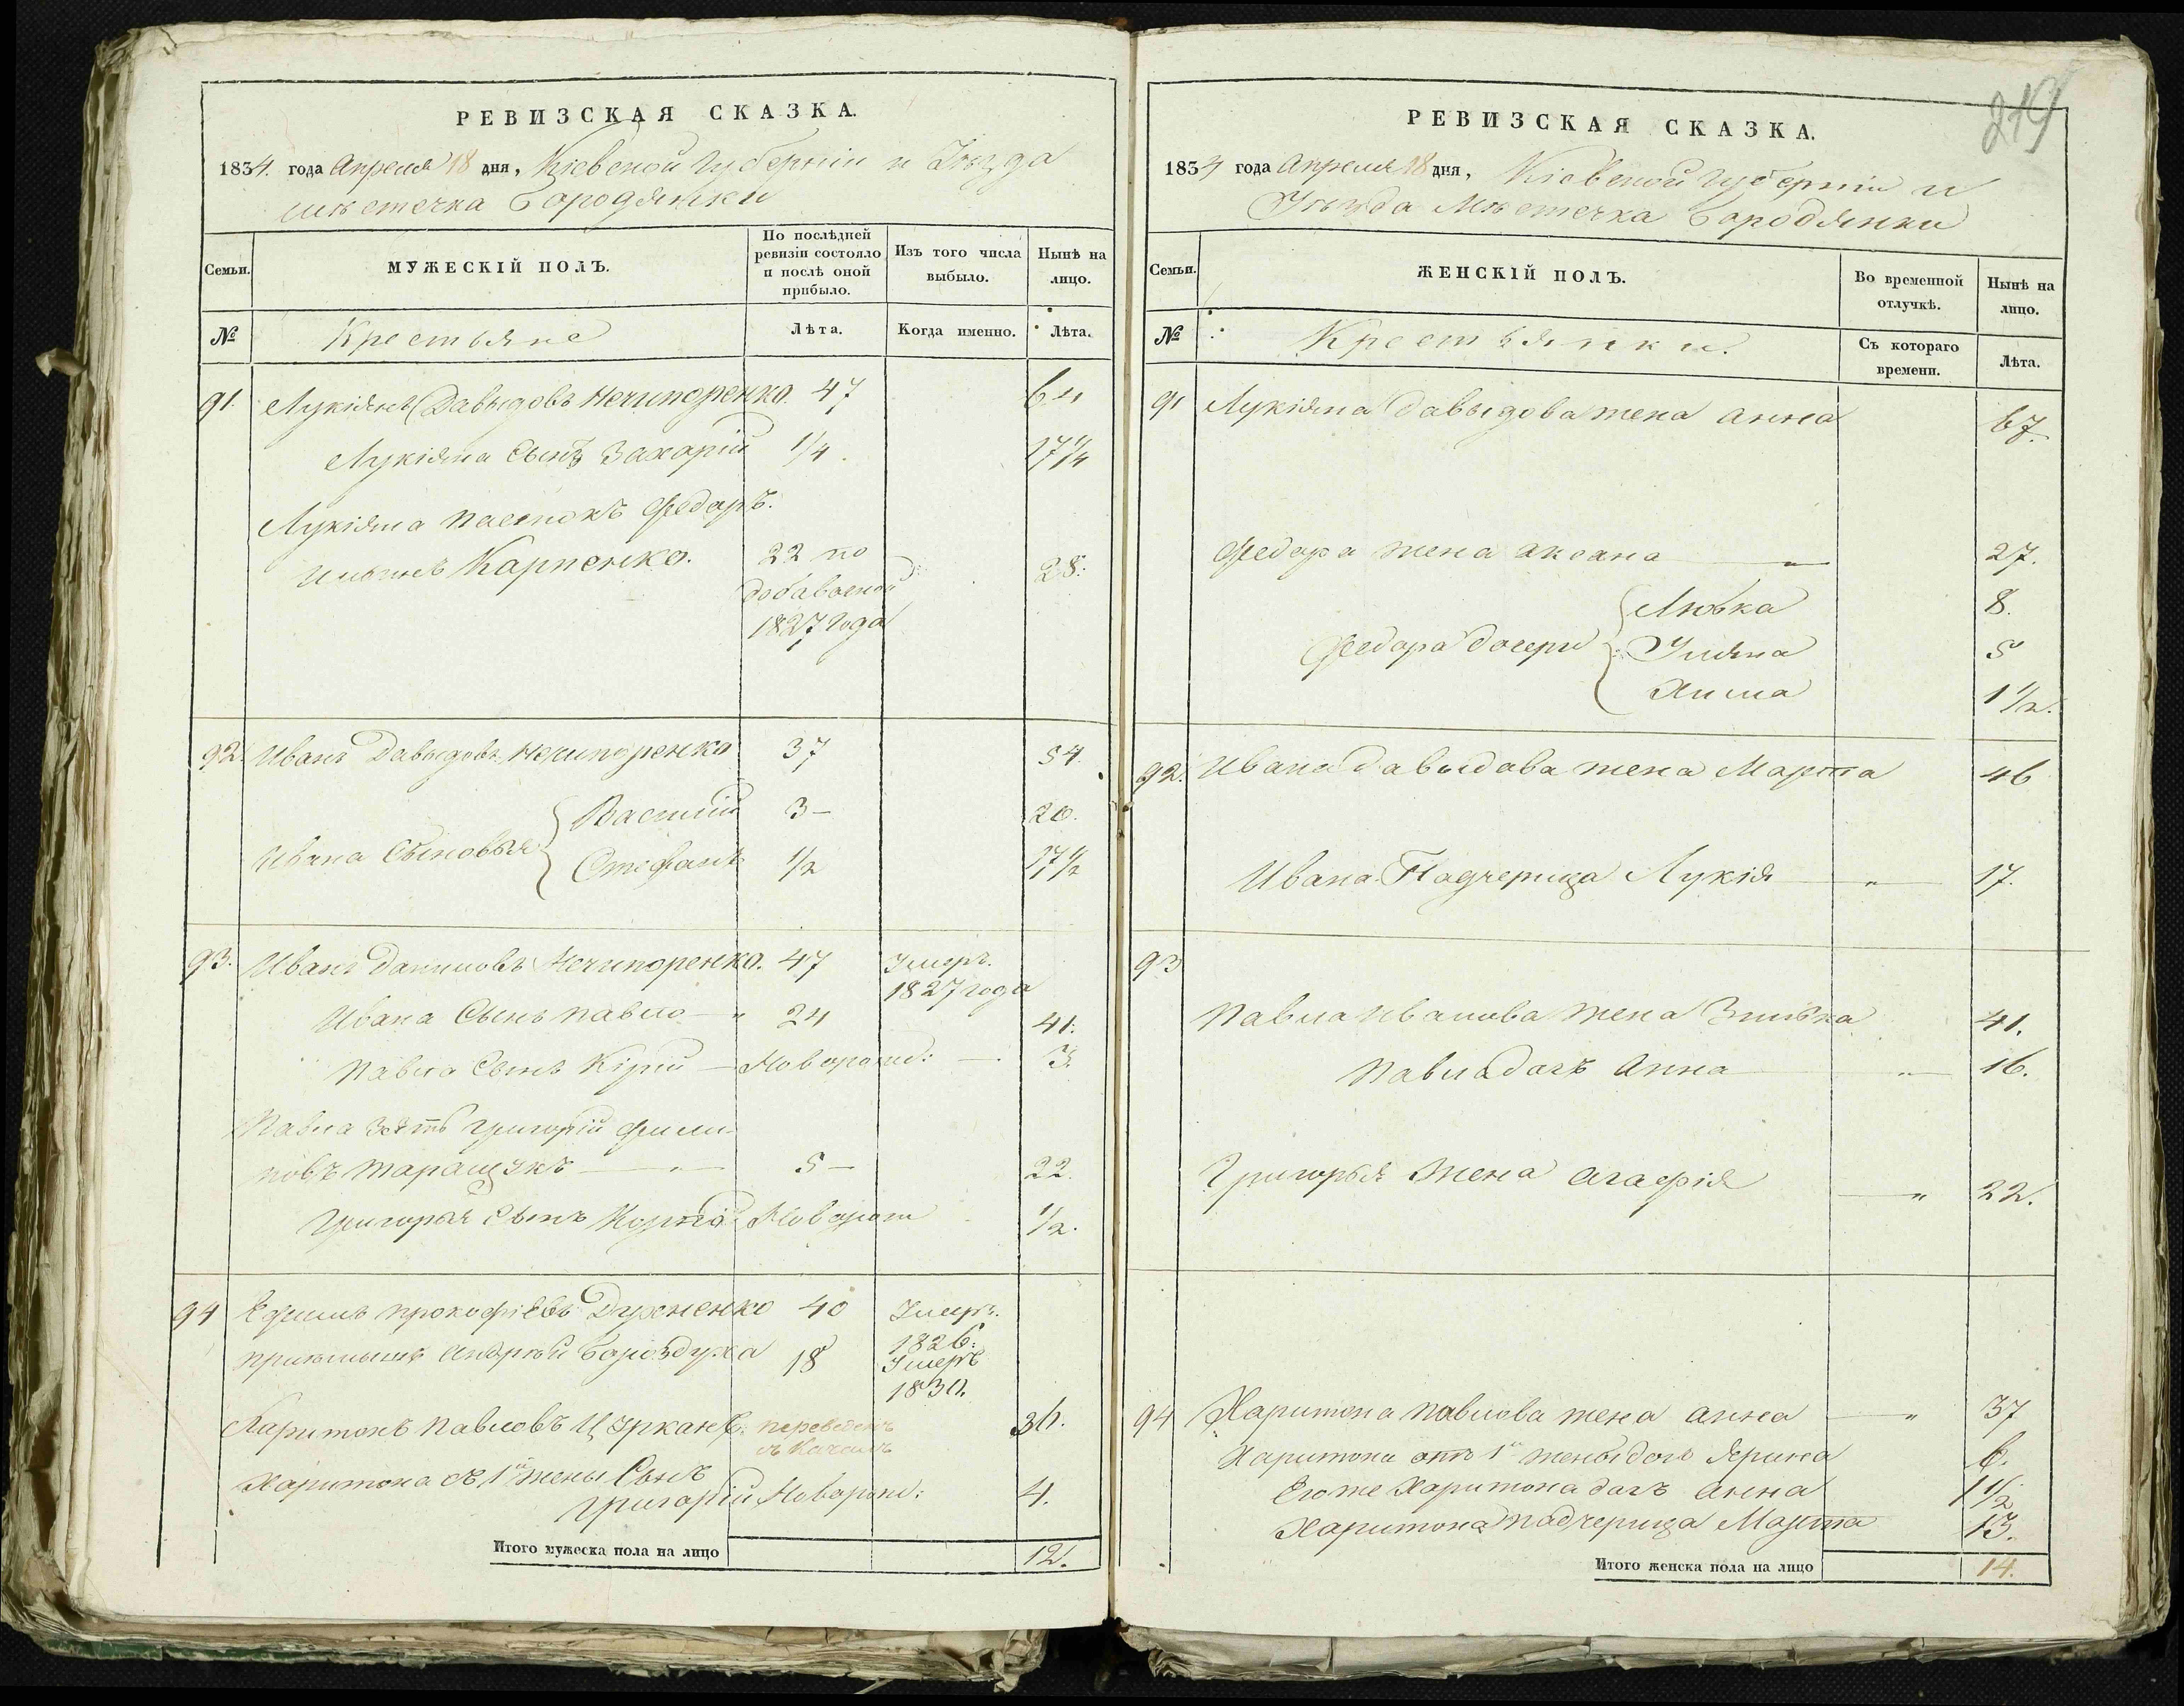 РЕВИЗСКАЯ СКАЗКА.
1834. года Апреля 18 дня, Кіевской Губерніи и Уѣзда
мѣстечка Бородянки
Семьи.
МУЖЕСКІЙ ПОЛЪ.
По послѣдней ревизіи состояло и послѣ оной прибыло.
Изъ того числа выбыло.
Нынѣ на лицо.
№
Крестьяне
Лѣта.
Когда именно.
Лѣта.
91. Лукіянъ Давыдовъ Нечипоренко. 47 64
Лукіяна Сынъ Захарій 1/4. 17 1/4
Лукіяна пасынокъ Федоръ.
Карпенко. 22 по 28.
добавочной
1827 года
92. Иванъ Давыдовъ Нечипоренко 37 54.
Ивана Сыновья { Василій 3 – 20.
Стефанъ 1/2 17 1/2
93. Иванъ Даниловъ Нечипоренко. 47 Умеръ.
1827 года
Ивана Сынъ Павло – " 24 41.
Павла Сынъ Кірій – Новорожд: – 3.
Павла Зять Григорій Фили-
повъ Таращукъ – " – 5 – 22.
Григорья Сынъ Новорож 1/2.
94 Ефимъ Прокофіевъ Духненко 40 Умеръ.
1826.
пріемышъ Андрей 18 Умеръ
1830.
Харитонъ Павловъ Цуркан переведенъ 36.
Харитона съ 1й жены Сынъ
Григорій Новорожд: 4.
Итого мужеска пола на лицо 12.
219
РЕВИЗСКАЯ СКАЗКА.
1834 года Апреля 18 дня, Кіевской Губерніи и
Уѣзда Мѣстечка Бородянки
Семьи.
ЖЕНСКІЙ ПОЛЪ.
Во временной отлучкѣ.
Нынѣ на лицо.
№
Крестьянки.
Съ котораго времени.
Лѣта.
91 Лукіяна Давыдова жена Анна 67.
Федора жена Оксана – " 27.
Федора дочери { Любка 8.
Уляна 5
Анна 1 1/2.
92. Ивана Давыдова жена Марта 46
Ивана Падчерица Лукія – " – 17.
93
Павла Иванова жена Зинька 41.
Павла дочь Анна – " – 16.
Григорья Жена Агафія – " 22.
94 Харитона Павлова жена Анна – " 37
Харитона отъ 1й жены дочь Ярина 6.
Егоже Харитона дочь Анна 1 1/2
Харитона падчерица Марта 13.
Итого женска пола на лицо 14.